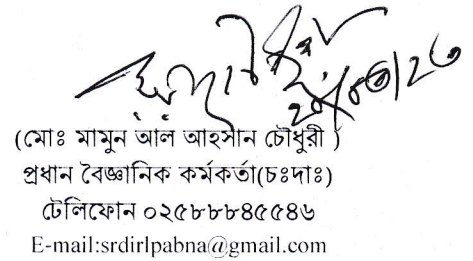 (মোঃ মামুন আল আহসান চৌধুরী )
প্রধান বৈজ্ঞানিক কর্মকর্তা(চঃদাঃ)
টেলিফোন ০২৫৮৮৮৪৫৫৪৬
E-mail:srdirlpabna@gmail.com